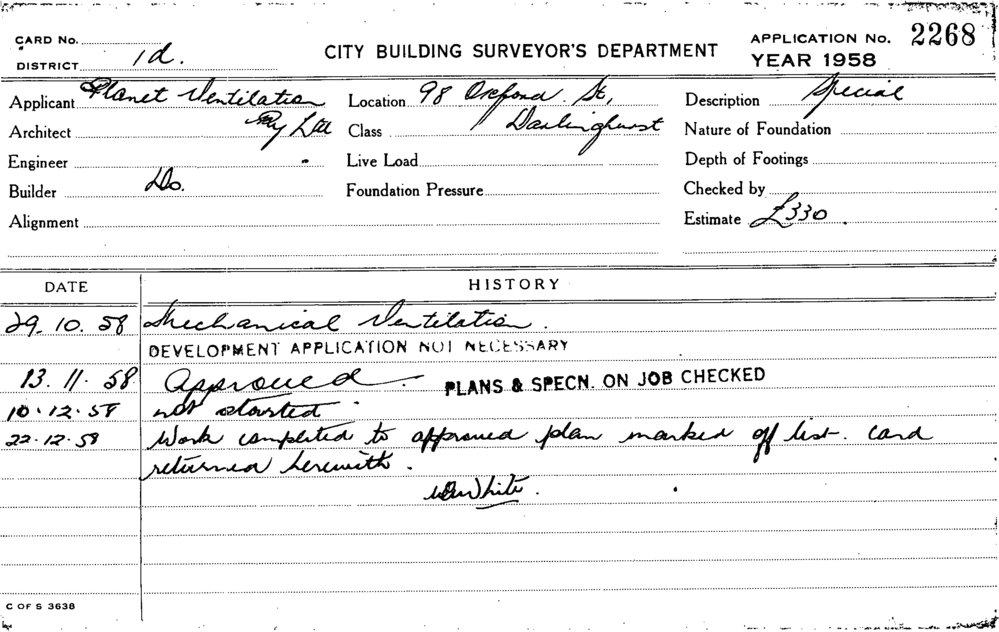 CARD No.
DISTRICT 1d.
CITY BUILDING SURVEYOR'S DEPARTMENT
APPLICATION No. 2268
YEAR 1958
Applicant Planet Ventilation Location 98 Oxford St, Description Special
Architect Pty Ltd Class Darlinghurst Nature of Foundation
Engineer Live Load Depth of Footings
Builder Do. Foundation Pressure Checked by
Alignment Estimate £330.
DATE HISTORY
29.10.58 Mechanical Ventilation.
DEVELOPMENT APPLICATION NOT NECESSARY
13.11.58 Approved. PLANS & SPECN. ON JOB CHECKED
10.12.58 not started
22.12.58 Work completed to approved plan marked off list. Card
returned herewith.
White.
C OF S 3638